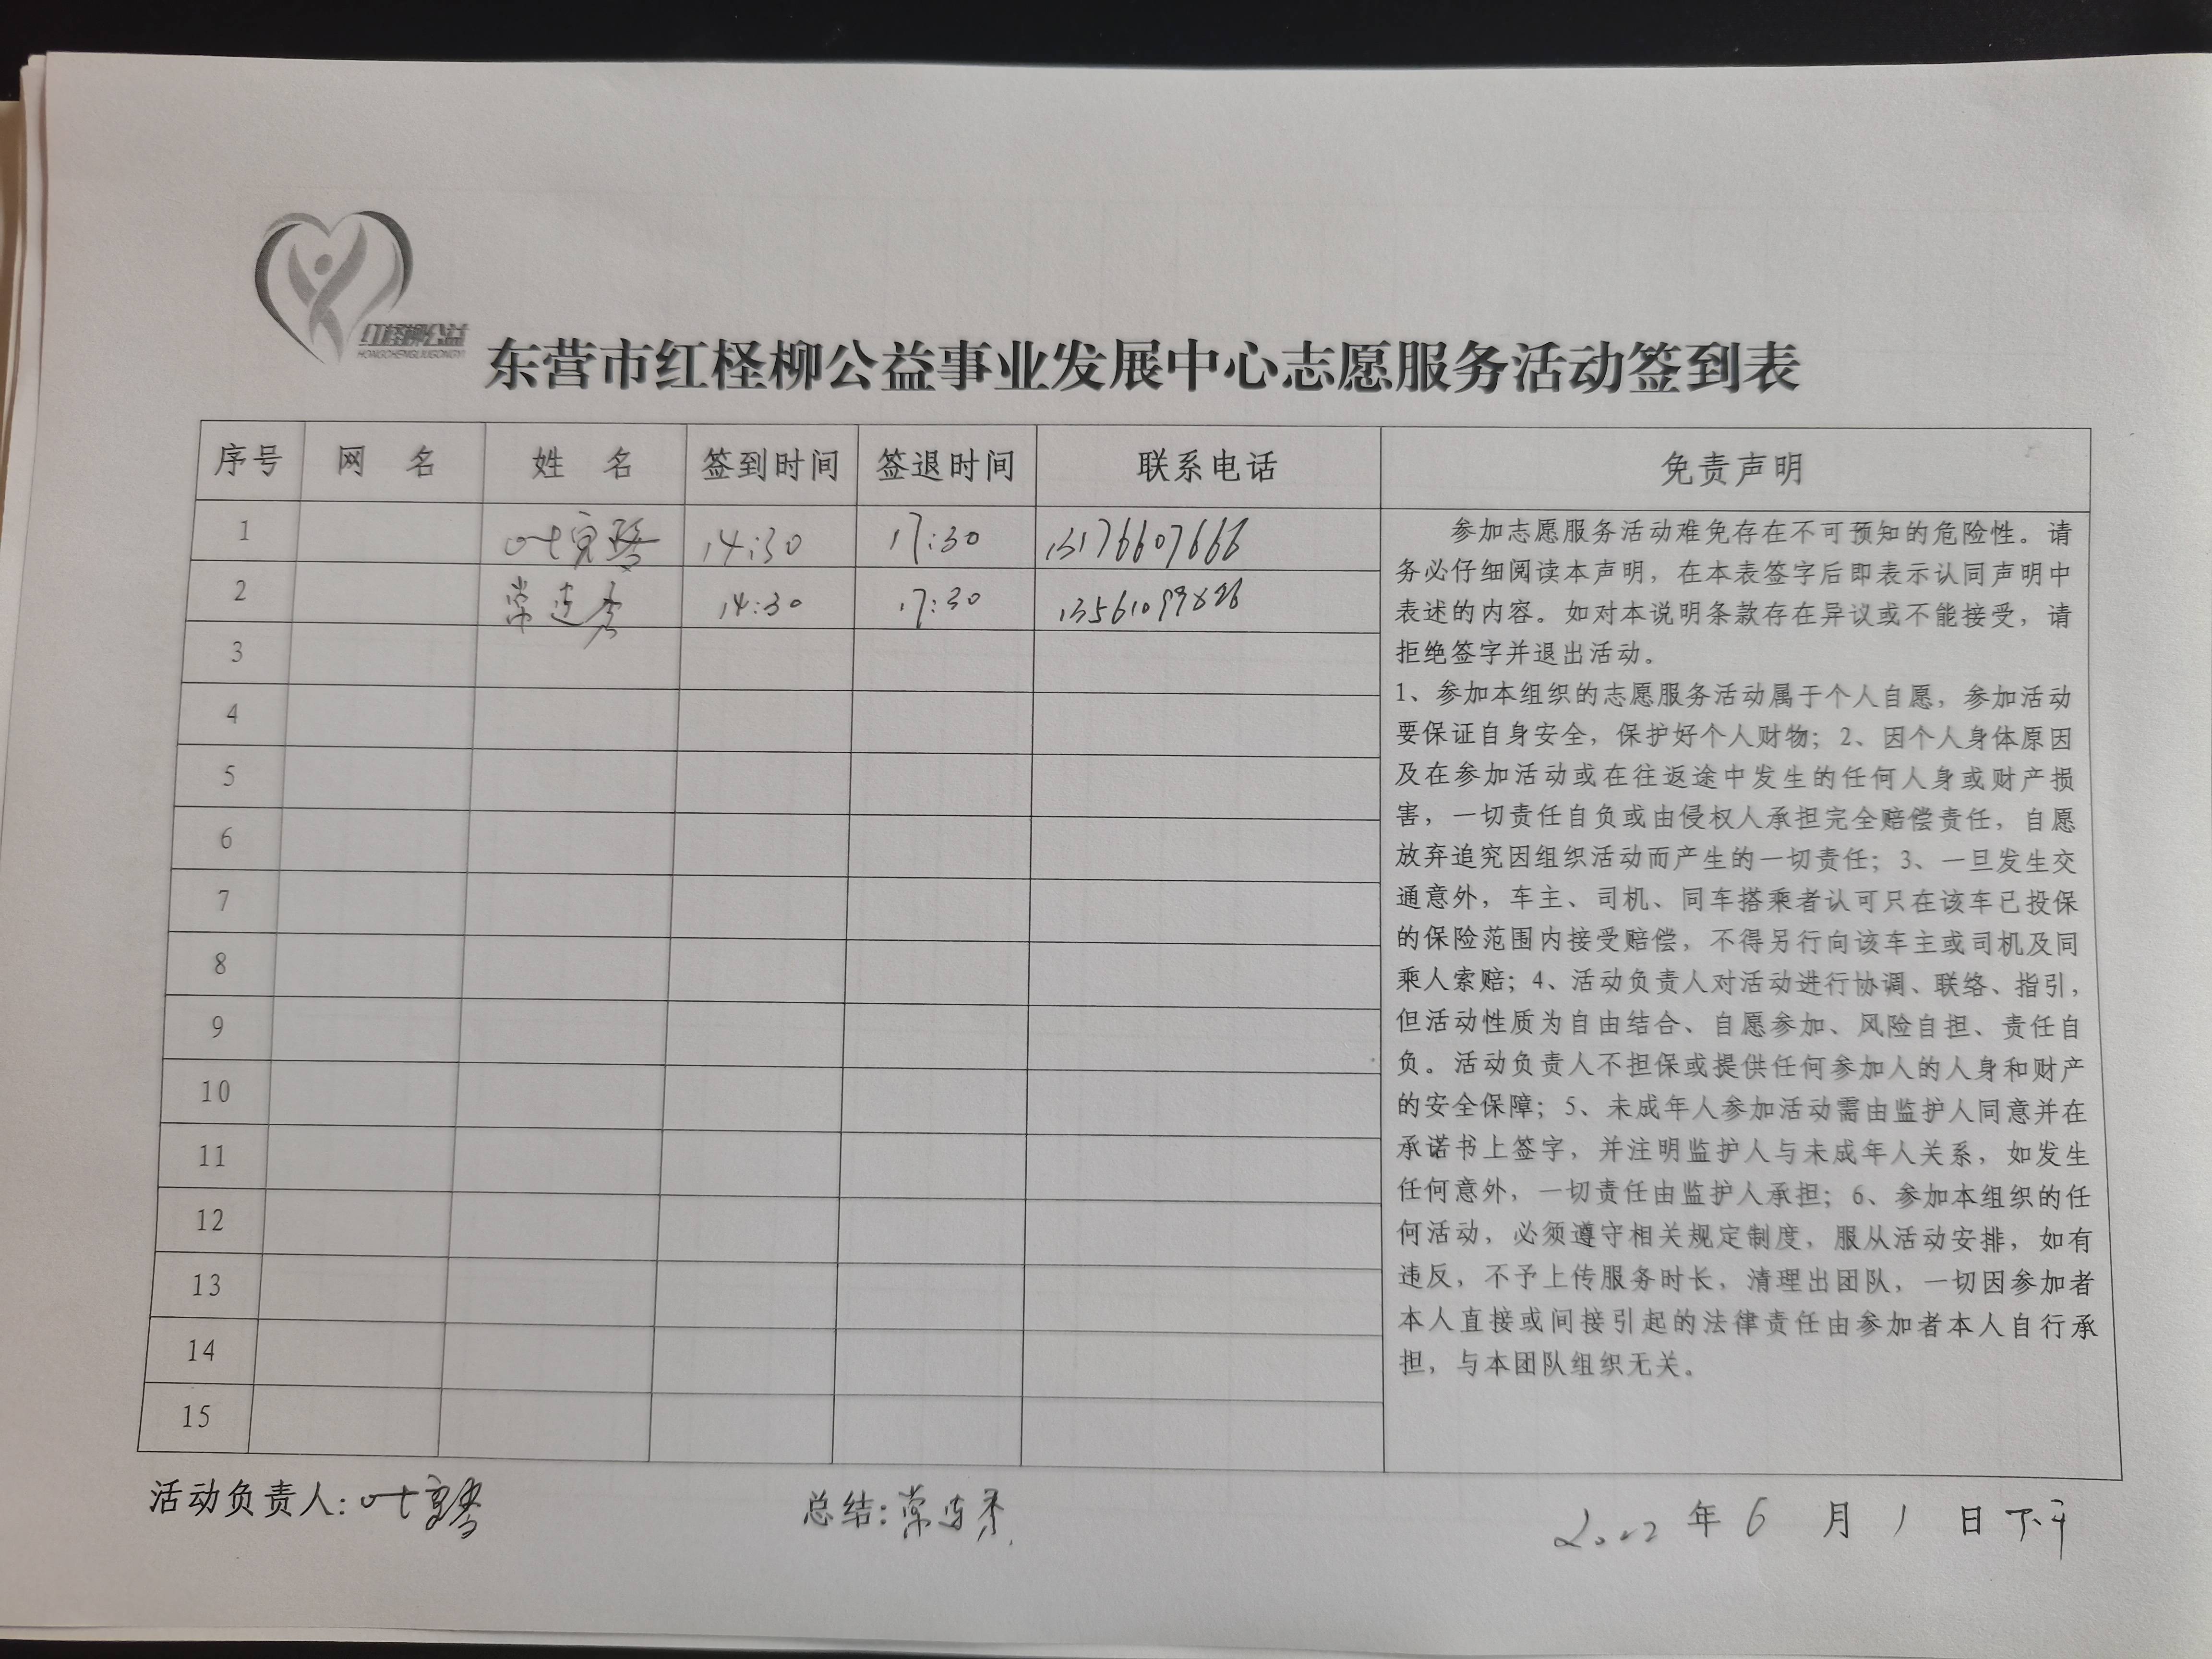 红柽柳公益
HONGCHENGLIUGONGYI
东营市红柽柳公益事业发展中心志愿服务活动签到表
序号 网 名 姓 名 签到时间 签退时间 联系电话 免责声明
1 14:30 17:30 13176607666
2 常连秀 14:30 17:30
3
4
5
6
7
8
9
10
11
12
13
14
15
参加志愿服务活动难免存在不可预知的危险性。请
务必仔细阅读本声明，在本表签字后即表示认同声明中
表述的内容。如对本说明条款存在异议或不能接受，请
拒绝签字并退出活动。
1、参加本组织的志愿服务活动属于个人自愿，参加活动
要保证自身安全，保护好个人财物；2、因个人身体原因
及在参加活动或在往返途中发生的任何人身或财产损
害，一切责任自负或由侵权人承担完全赔偿责任，自愿
放弃追究因组织活动而产生的一切责任；3、一旦发生交
通意外，车主、司机、同车搭乘者认可只在该车已投保
的保险范围内接受赔偿，不得另行向该车主或司机及同
乘人索赔；4、活动负责人对活动进行协调、联络、指引，
但活动性质为自由结合、自愿参加、风险自担、责任自
负。活动负责人不担保或提供任何参加人的人身和财产
的安全保障；5、未成年人参加活动需由监护人同意并在
承诺书上签字，并注明监护人与未成年人关系，如发生
任何意外，一切责任由监护人承担；6、参加本组织的任
何活动，必须遵守相关规定制度，服从活动安排，如有
违反，不予上传服务时长，清理出团队，一切因参加者
本人直接或间接引起的法律责任由参加者本人自行承
担，与本团队组织无关。
活动负责人: 总结:常连秀 2022年6月1日下午